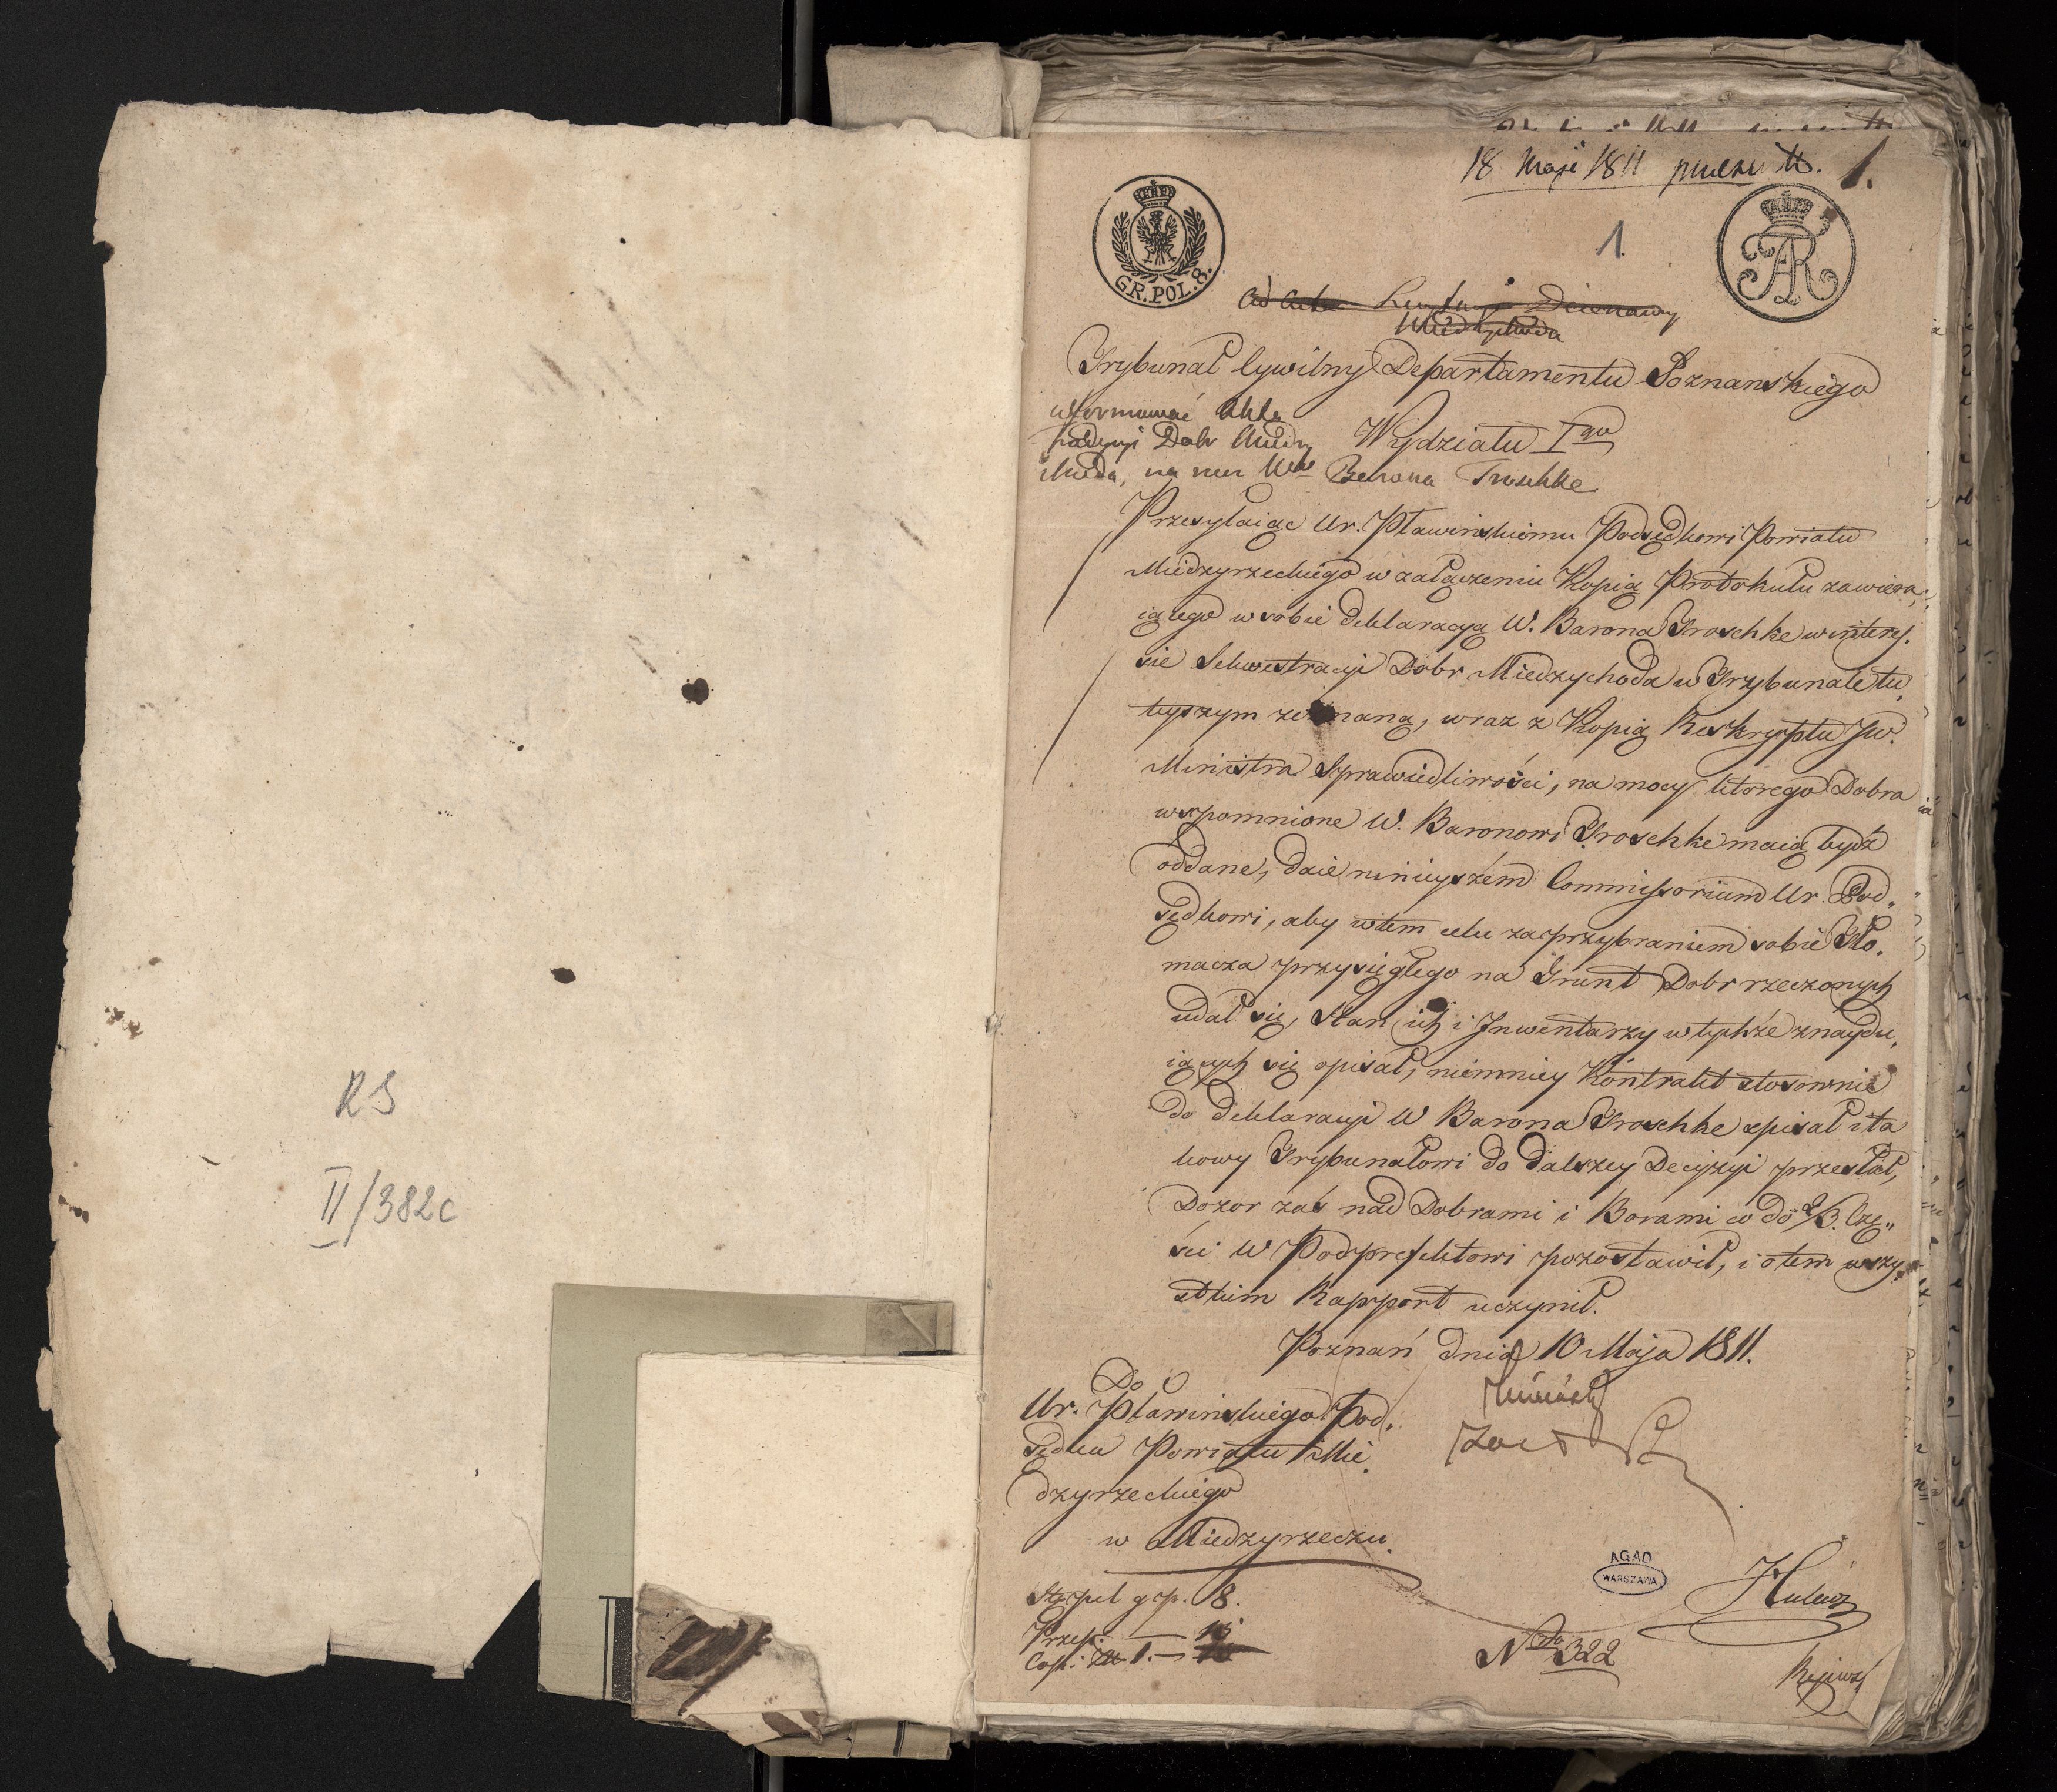 18 Maja 1811 1.
1
GR. POL. 8.
FAR
Ad Acta Dzierzawy
Międzychoda
Trybunał Cywilny Departamentu Poznanskiego
uformować Akta
Wydziału Igo
tradycyi Dobr Miedzy
choda, na rzecz Wo Barona Troschke
Przesyłaiąc Ur. Pławinskiemu Podsędkowi Powiatu
Miedzyrzeckiego w załączeniu Kopią Protokułu zawiera,
iącego w sobie deklaracyą W. Barona Troschke w interes.
sie Sekwestracyi Dobr Miedzychoda w Trybunale tu,
tyszym zeznaną, wraz z Kopią Reskryptu JW.
Ministra Sprawiedliwości, na mocy ktorego Dobra
wspomnione W. Baronowi Troschke maią bydź
oddane, daie ninieyszém Commissorium Ur. Pod„
sędkowi, aby w tem celu za przybraniem sobie Tło.
macza przysięgłego na Grunt Dobr rzeczonych
udał się, Stan ich i Inwentarzy w tychże znaydu,
iących się opisał, niemniey Kontrakt stosownie
do deklaracyi W Barona Troschke spisał i ta
kowy Trybunałowi do dalszey Decyzyi przesłał,
Dozor zaś nad Dobrami i Borami co do 2/3. Czę„
ści W Podprefektowi pozostawił, i o tem wszy,
stkim Rapport uczynił.
Poznań dnia 10 Maja 1811.
Do
Ur. Pławinskiego Pod„
sędka Powiatu Mie
dzyrzeckiego
w Miedzyrzeczu.
Stępel gr p. 8.
Przep. — 15
Cop: 1. —
AGAD
WARSZAWA
Hulewicz
No 322
RS
II/382c